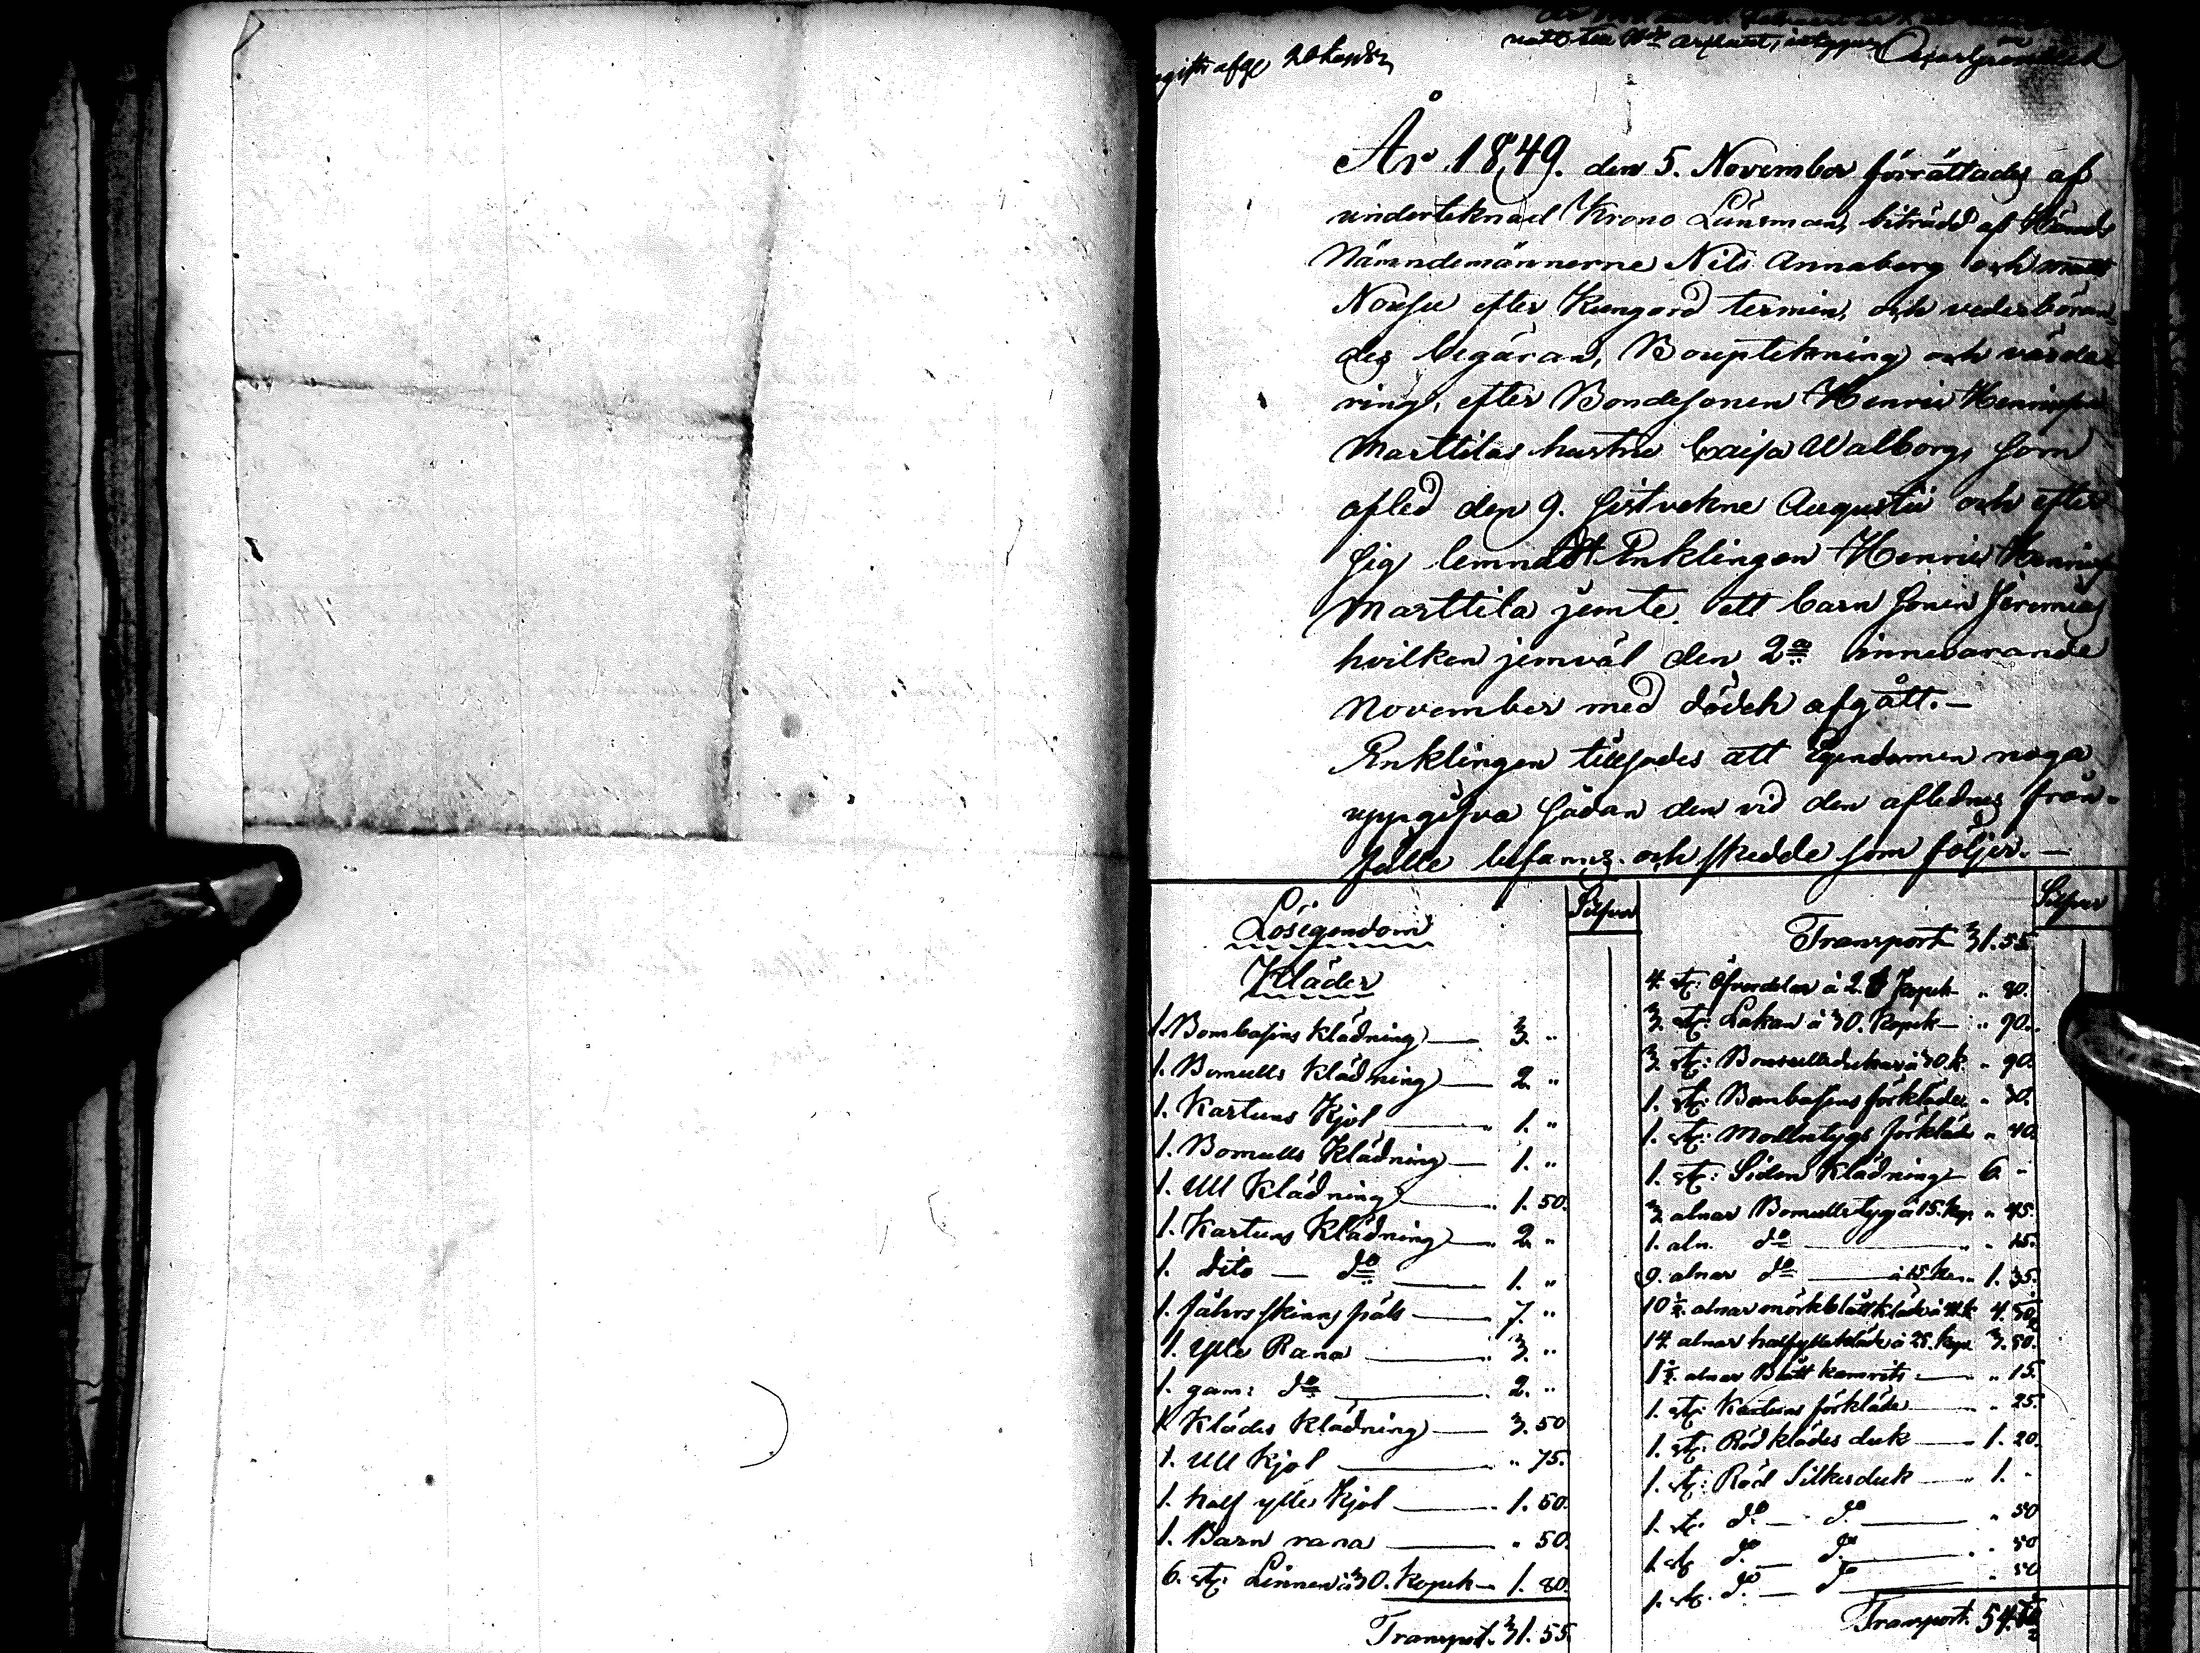 År 1849. den 5. November förrättades af
underteknad Krono Länsman, biträdd af Härads
Nämndemännerne Nils Annaberg och Matts
Norsu efter Kungord termin, och vederböran
des begäran, Bouptekning och värde
ring, efter Bondesonen Henric Henricson
Marttilas hustru Caisa Walborg, som
afled den 9. sistvekne Augusti och efter
sig lemnadt Enklingen Henric Henrics
Marttila jemte ett barn sonen Jeremias
hvilken jemväl den 2a innevarande
November med döden afgått. —
Enklingen tillsades att Egendomen noga
uppgifva sådan den vid den aflednes från-
fälle befanns och skedde som följer. —
Lösegendom
Silfver
Kläder
1. Bombasins Klädning — 3. "
1. Bomulls Klädning — 2. "
1. Kartuns Kjol — 1. "
1. Bomulls Klädning — 1. "
1. Ull Klädning — 1. 50.
1. Kartuns Klädning — 2. "
1. Dito — do — 1. "
1. Fåhrs skinns päls — 7. "
1. Ylle Rana — 3. "
1. gam: do — 2. "
1. Klädes Klädning — 3. 50
1. Ull Kjol — " 75.
1. half ylle Kjol — 1. 50.
1. Barn rana — " 50.
6. st: Linnen à 30. Kopek — 1. 80.
Transport. 31. 55.
Silfver
Transport 31. 55.
4. st: Öfverdelar à 20 Kopek " 80.
3. st: Lakan à 30. Kopek — " 90.
3. st: Bomullsdukar à 30 k. " 90.
1. st: Bombasins förkläde " 30.
1. st: Mollntygs förkläde " 40.
1. st: Siden Klädning — 6. "
3. alnar Bomullstyg à 15. kop. " 45.
1. aln. do — " 15.
9. alnar do — à 15. kop. 1. 35.
10 1/2. alnar mörkblått kläde 4. 50
14. alnar halfylle kläde à 25. kop. 3. 50.
1 1/2. alnar Blått kamrits — " 15.
1. st: Kartuns förkläde — " 25.
1. st: Röd klädes duk — 1. 20.
1. st: Röd Silkesduk — 1. "
1. st. do — do — " 50
1. st. do — do — " 50
1. st. do — do — " 50
Transport. 54.